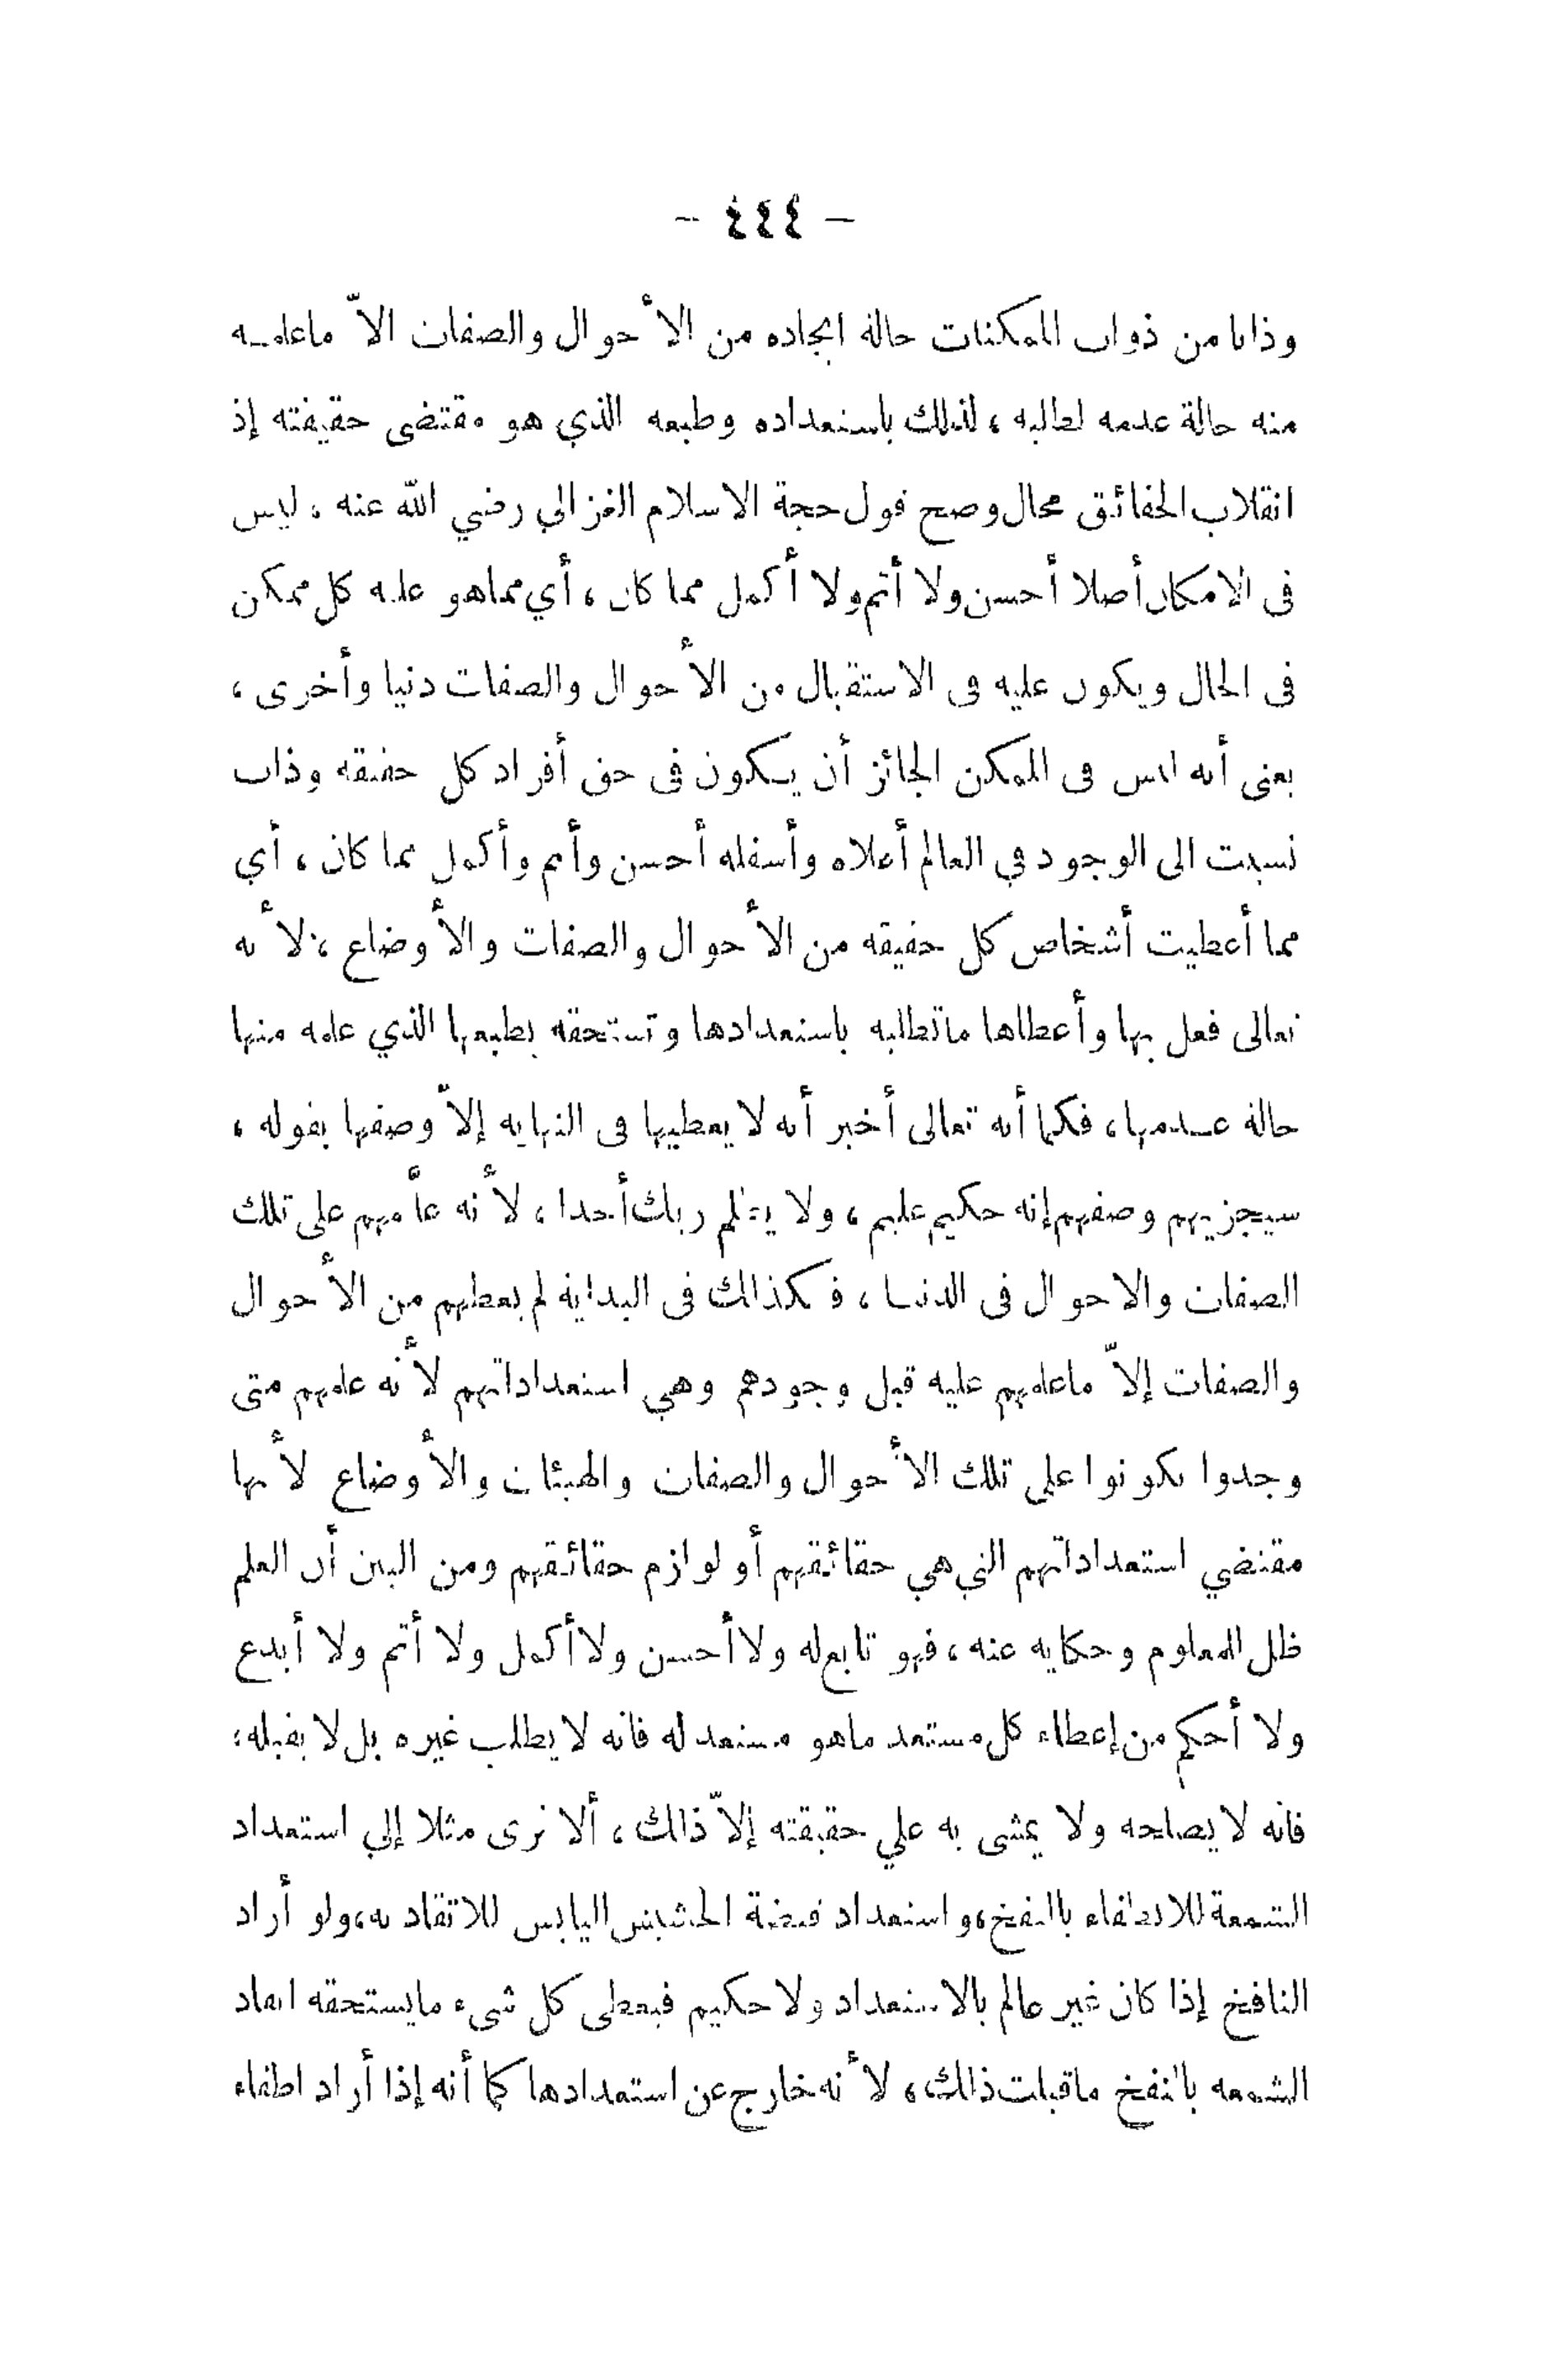 - ٤٤٤ -
وذاتا من ذوات الممكنات حالة ايجاده من الأحوال والصفات الاّ ماعلمـه
منه حالة عدمه لطالبه ، لذلك باستعداده وطبعه الذي هو مقتضى حقيقته إذ
انقلاب الحقائق محال وصح قول حجة الاسلام الغزالي رضي الله عنه ، ليس
فى الامكان أصلا أحسن ولا أتم ولا أكمل مما كان ، أي مما هو عليه كل ممكن
فى الحال ويكون عليه فى الاستقبال من الأحوال والصفات دنيا وأخرى ،
بعنى أنه ليس فى الممكن الجائز أن يكون فى حق أفراد كل حقيقة وذات
نسبت الى الوجود في العالم أعلاه وأسفله أحسن وأتم وأكمل مما كان ، أي
مما أعطيت أشخاص كل حقيقة من الأحوال والصفات والأوضاع ، لأنه
تعالى فعل بها وأعطاها ماتطلبه باستعدادها وتستحقه بطبعها الذي علمه منها
حالة عـدمها ، فكما أنه تعالى أخبر أنه لا يعطيها فى النهاية إلاّ وصفها بقوله ،
سيجزيهم وصفهم إنه حكيم عليم ، ولا يظلم ربك أحدا ، لأنه علمهم على تلك
الصفات والاحوال فى الدنيـا ، فكذالك فى البداية لم يعطهم من الأحوال
والصفات إلاّ ماعلمهم عليه قبل وجودهم وهي استعداداتهم لأنه علمهم متى
وجدوا يكونوا على تلك الأحوال والصفات والهيئات والأوضاع لأنها
مقتضي استعداداتهم التي هي حقائقهم أو لوازم حقائقهم ومن البين أن العلم
ظل المعلوم وحكاية عنه ، فهو تابع له ولا أحسن ولا أكمل ولا أتم ولا أبدع
ولا أحكم من إعطاء كل مستعد ماهو مستعد له فانه لا يطلب غيره بل لا يقبله ؛
فانه لا يصلحه ولا يمشى به علي حقيقته إلاّ ذالك ، ألا ترى مثلا إلي استعداد
الشمعة للانطفاء بالنفخ ، واستعداد قبضة الحشيش اليابس للاتقاد به ، ولو أراد
النافخ إذا كان غير عالم بالاستعداد ولا حكيم فيعطى كل شىء مايستحقه ايقاد
الشمعه بالنفخ ماقبلت ذالك ، لأنه خارج عن استعدادها كما أنه إذا أراد اطفاء